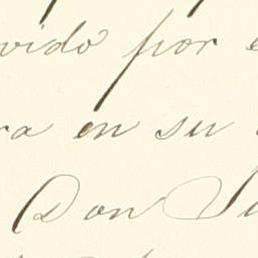 vido por e
ra en su
Don